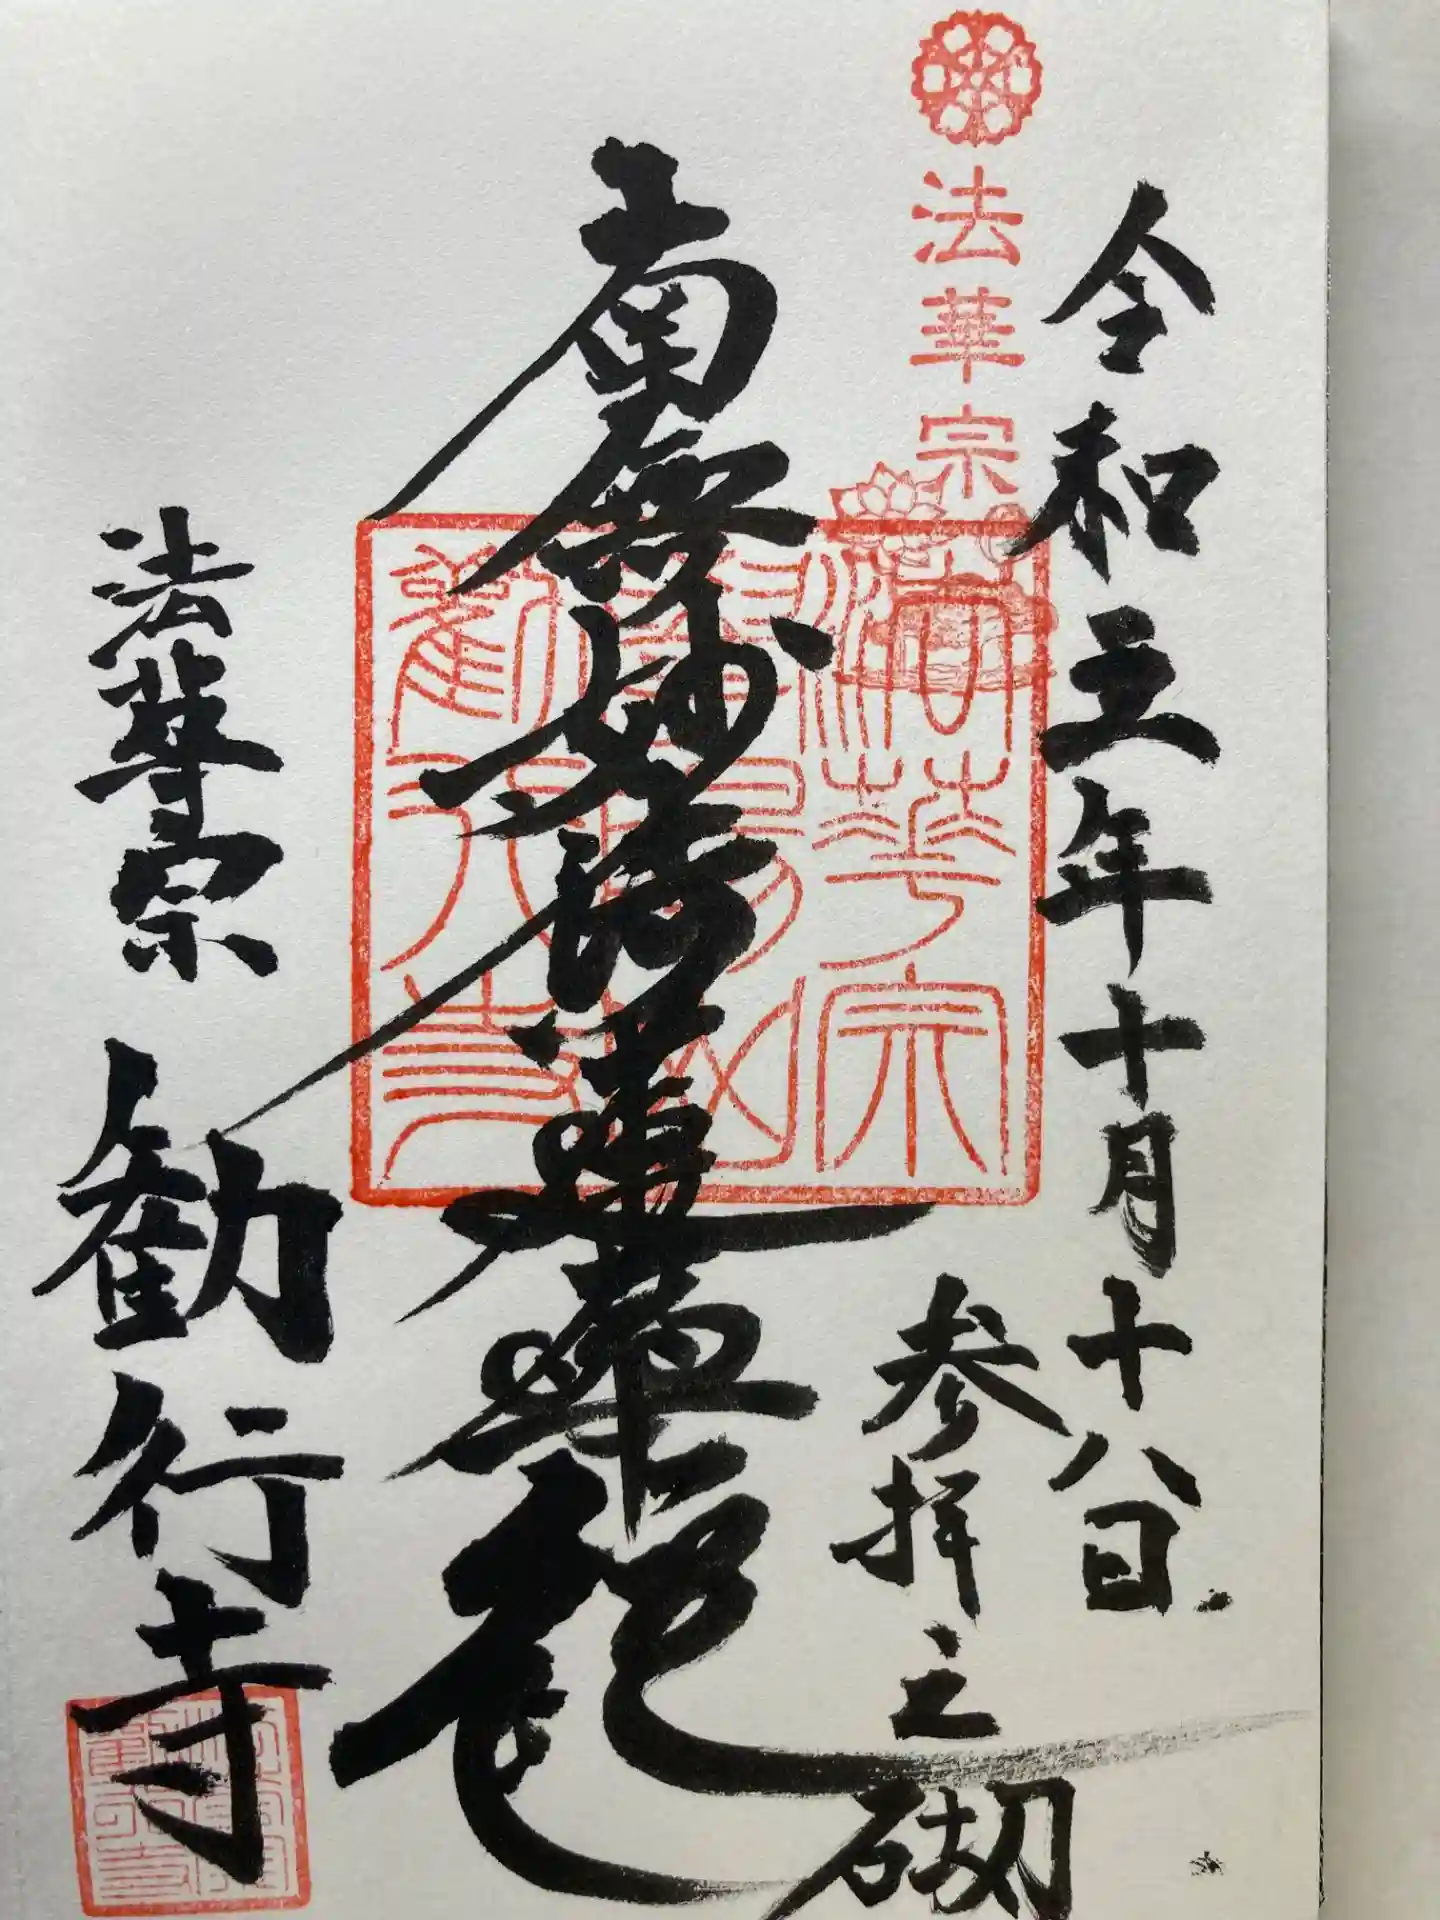 令和五年十月十八日
法華宗
参拝之砌
法華宗
南無妙法蓮華経
勧行寺
法華宗
勧行寺